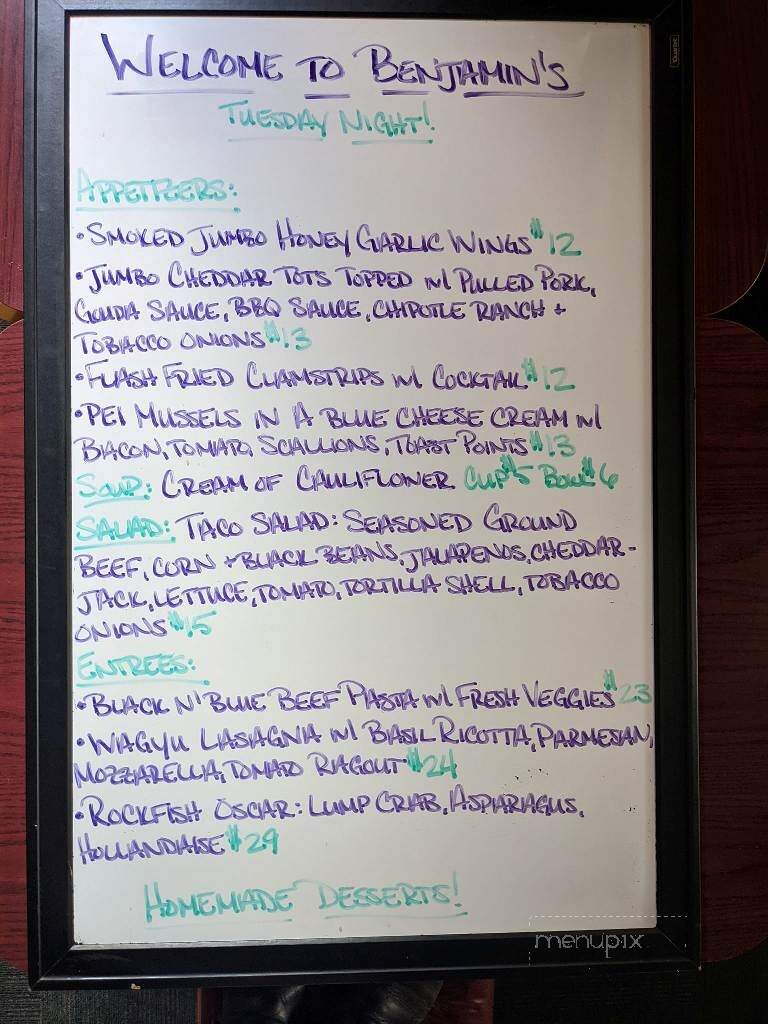 WELCOME TO BENJAMIN'S
TUESDAY NIGHT!
APPETIZERS:
•SMOKED JUMBO HONEY GARLIC WINGS $12
•JUMBO CHEDDAR TOTS TOPPED W/ PULLED PORK,
GOUDA SAUCE, BBQ SAUCE, CHIPOTLE RANCH +
TOBACCO ONIONS $13
•FLASH FRIED CLAMSTRIPS W/ COCKTAIL $12
•PEI MUSSELS IN A BLUE CHEESE CREAM W/
BACON, TOMATO, SCALLIONS, TOAST POINTS $13
SOUP: CREAM OF CAULIFLOWER CUP $5 BOWL $6
SALAD: TACO SALAD: SEASONED GROUND
BEEF, CORN + BLACK BEANS, JALAPENOS, CHEDDAR-
JACK, LETTUCE, TOMATO, TORTILLA SHELL, TOBACCO
ONIONS $15
ENTREES:
•BLACK N' BLUE BEEF PASTA W/ FRESH VEGGIES $23
•WAGYU LASAGNA W/ BASIL RICOTTA, PARMESAN,
MOZZARELLA, TOMATO RAGOUT $24
•ROCKFISH OSCAR: LUMP CRAB, ASPARAGUS,
HOLLANDAISE $29
HOMEMADE DESSERTS!
menupix